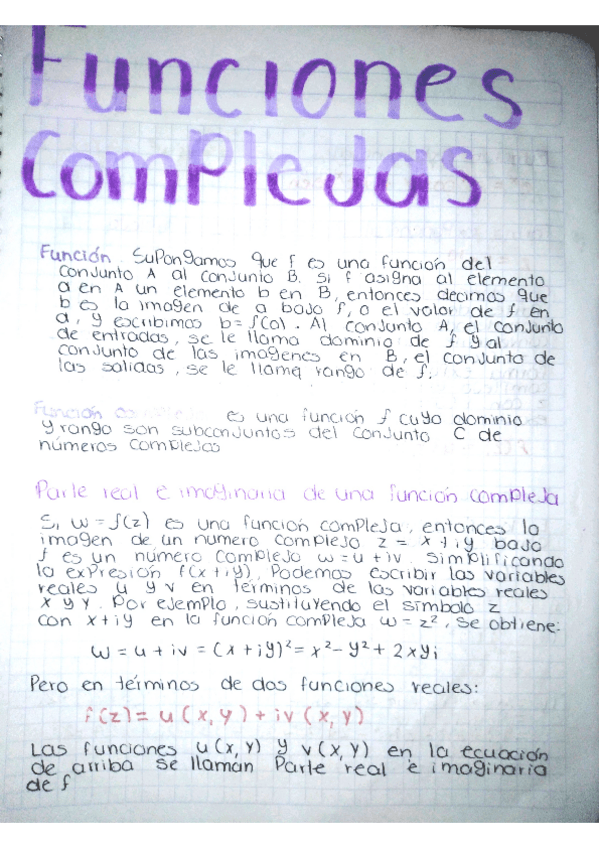 Funciones
Complejas
Función. Supongamos que f es una función del
conjunto A al conjunto B. Si f asigna al elemento
a en A un elemento b en B, entonces decimos que
b es la imagen de a bajo f, o el valor de f en
a, y escribimos b = f(a). Al conjunto A, el conjunto
de entradas, se le llama dominio de f y al
conjunto de las imagenes en B, el conjunto de
las salidas, se le llama rango de f.
Función compleja es una función f cuyo dominio
y rango son subconjuntos del conjunto C de
números complejos
Parte real e imaginaria de una función compleja
Si w = f(z) es una función compleja, entonces la
imagen de un numero complejo z = x + iy bajo
f es un número complejo w = u + iv. Simplificando
la expresión f(x + iy), Podemos escribir las variables
reales u y v en términos de las variables reales
x y y. Por ejemplo, sustituyendo el símbolo z
con x + iy en la función compleja w = z², se obtiene:
w = u + iv = (x + iy)² = x² - y² + 2xyi
Pero en términos de dos funciones reales:
f(z) = u(x, y) + iv(x, y)
Las funciones u(x, y) y v(x, y) en la ecuación
de arriba se llaman Parte real e imaginaria
de f